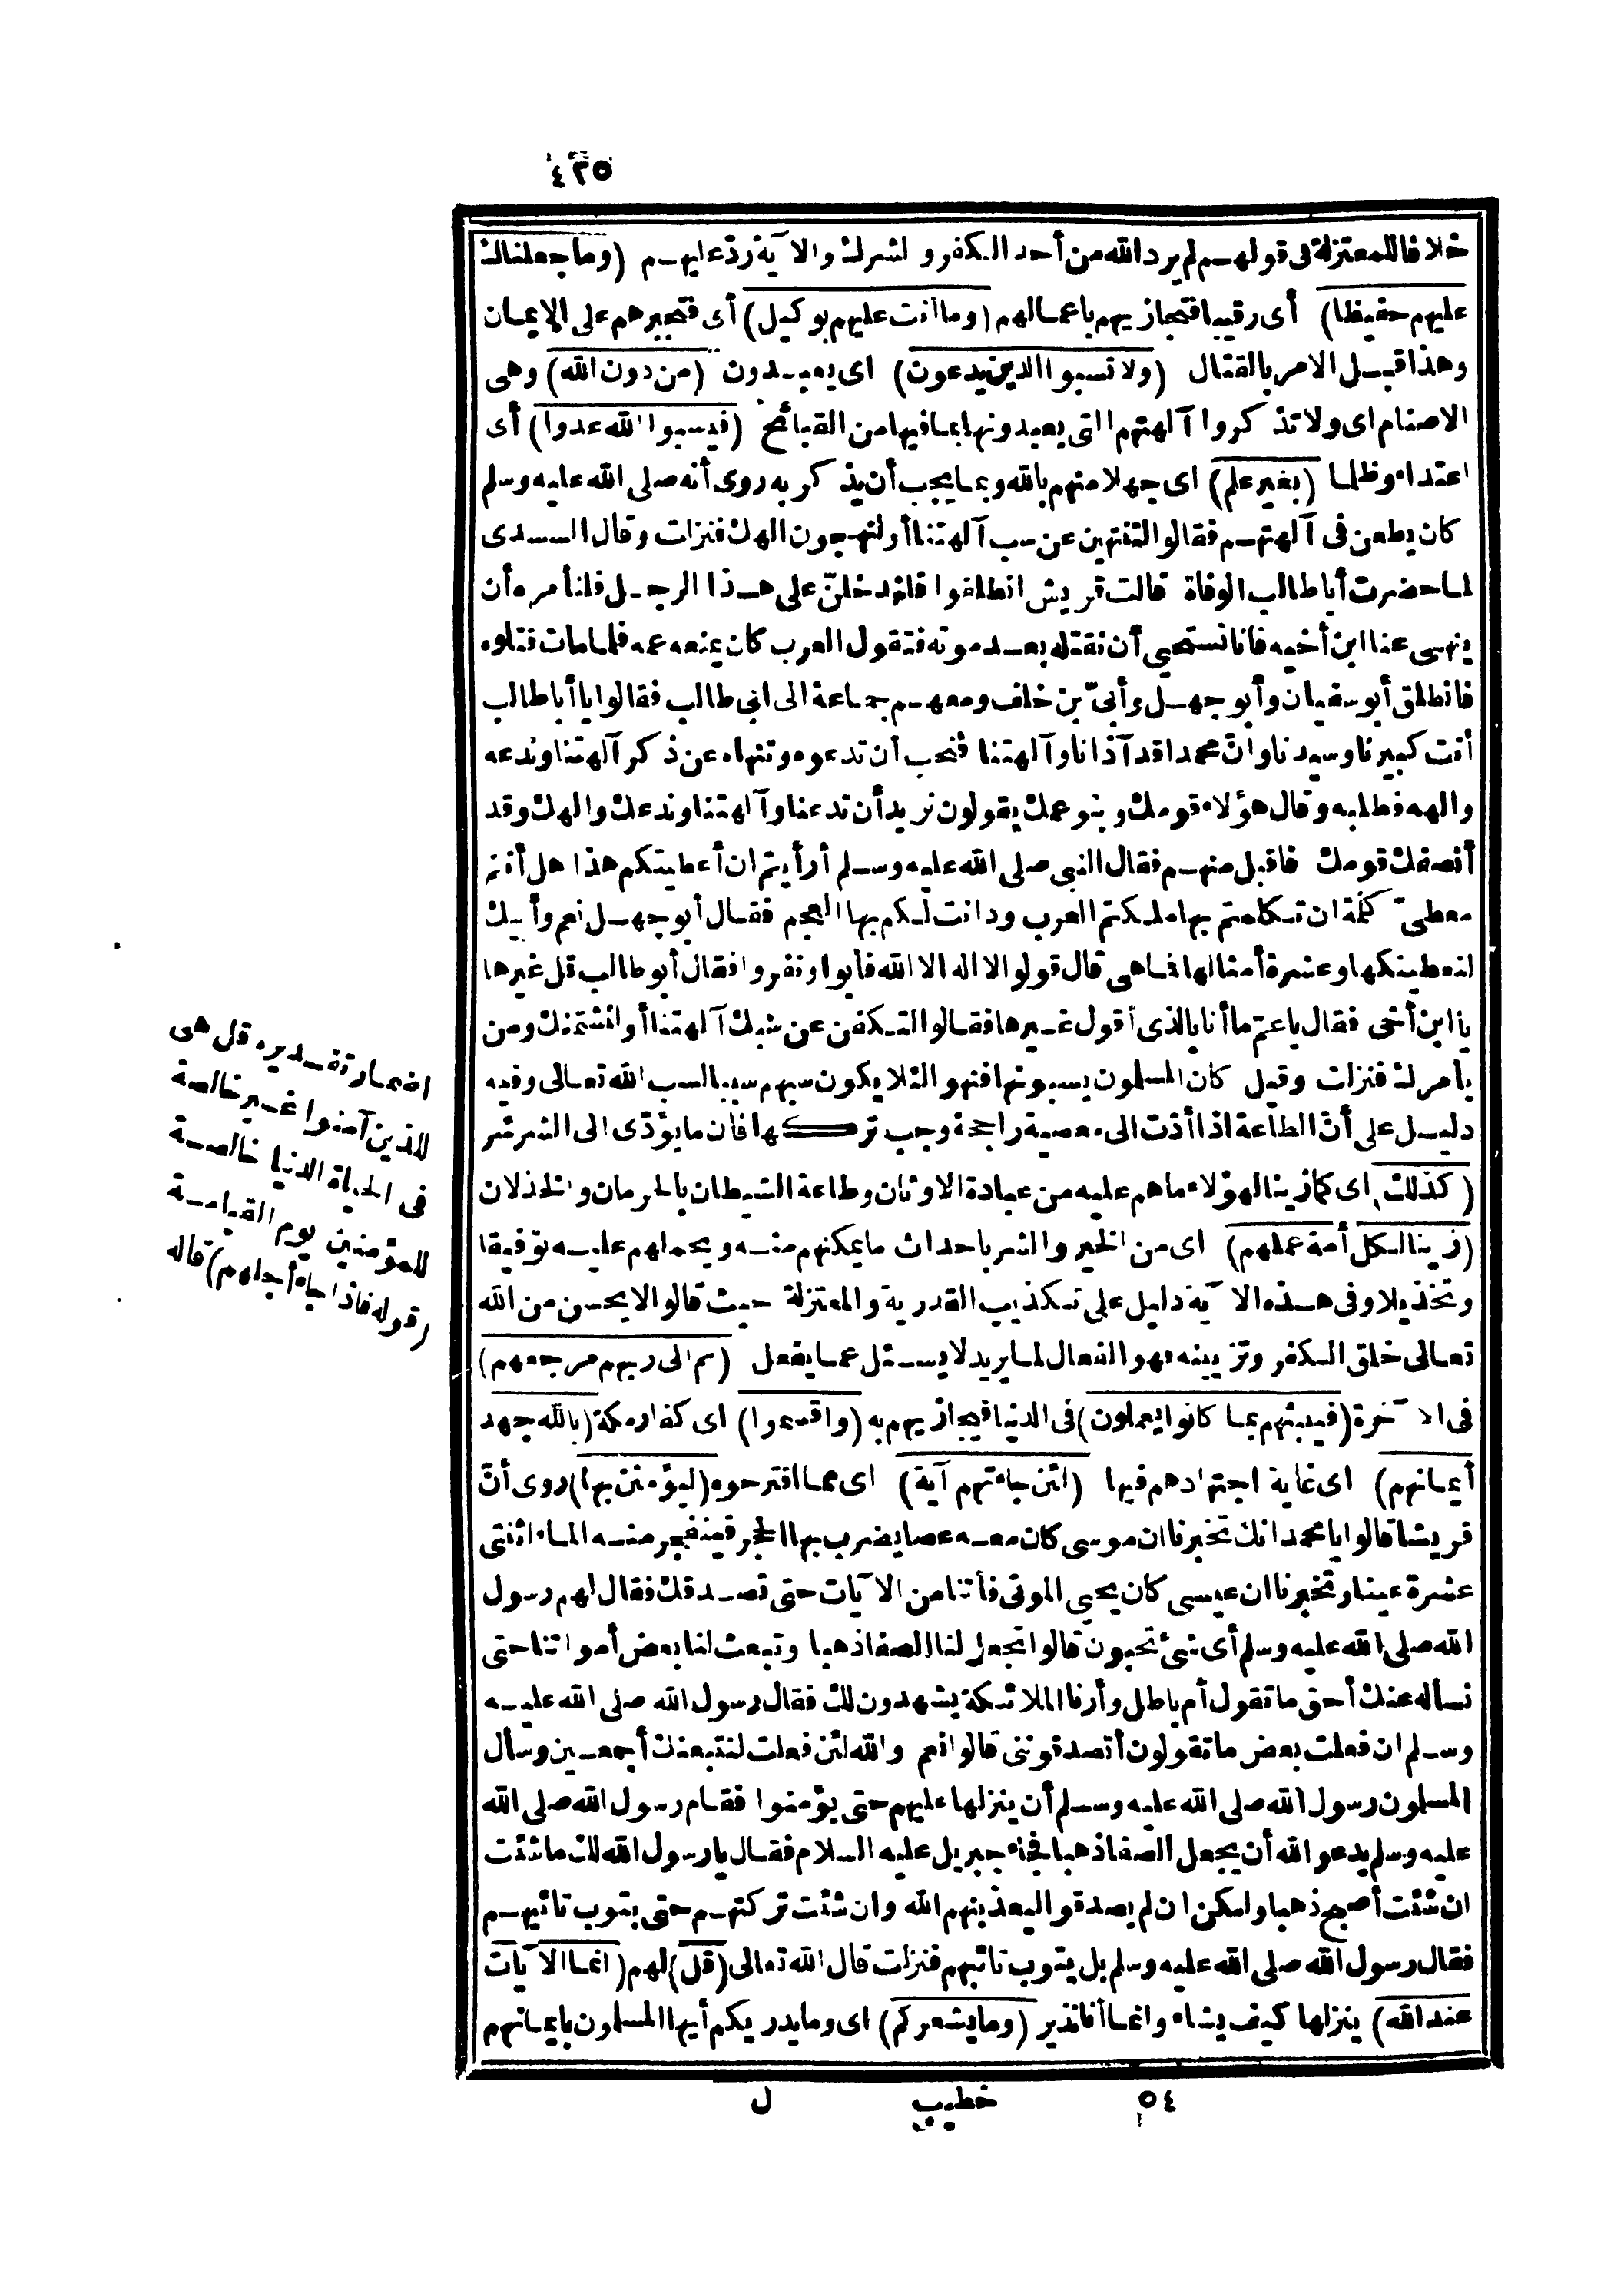 ٤٢٥
خلافا للمعتزلة فى قولهم لم يرد الله من أحد الكفر والشرك والآية ردّ عليهم (وما جعلناك
عليهم حفيظا) أى رقيبا فتجازيهم باعمالهم (وما أنت عليهم بوكيل) أى فتجبرهم على الايمان
وهذا قبل الامر بالقتال (ولا تسبوا الذين يدعون) اى يعبدون (من دون الله) وهى
الاصنام اى ولا تذكروا آلهتهم التى يعبدونها بما فيها من القبائح (فيسبوا الله عدوا) أى
اعتداء وظلما (بغير علم) اى جهلا منهم بالله وبما يجب أن يذكر به روى أنه صلى الله عليه وسلم
كان يطعن فى آلهتهم فقالوا لتنتهين عن سب آلهتنا أو لنهجون الهك فنزلت وقال السدى
لما حضرت أبا طالب الوفاة قالت قريش انطلقوا فلندخلنّ على هذا الرجل فلنأمره أن
ينهى عنا ابن أخيه فانا نستحيي أن نقتله بعد موته فتقول العرب كان يمنعه عمه فلما مات قتلوه
فانطلق أبو سفيان وأبو جهل وأبىّ بن خلف ومعهم جماعة الى ابى طالب فقالوا يا أبا طالب
أنت كبيرنا وسيدنا وانّ محمدا قد آذانا وآلهتنا فنحب أن تدعوه وتنهاه عن ذكر آلهتنا وندعه
والهه فطلبه وقال هؤلاء قومك وبنو عمك يقولون نريد أن تدعنا وآلهتنا وندعك والهك وقد
أنصفك قومك فاقبل منهم فقال النبى صلى الله عليه وسلم أرأيتم ان أعطيتكم هذا هل أنتم
معطىّ كلمة ان تكلمتم بها ملكتم العرب ودانت لكم بها العجم فقال أبو جهل نعم وأبيك
لنعطينكها وعشرة أمثالها فما هى قال قولوا لا اله الا الله فأبوا ونفروا فقال أبو طالب قل غيرها
يا ابن أخى فقال يا عمّ ما أنا بالذى أقول غيرها فقالوا لتكفن عن شتمك آلهتنا أو لنشتمنك ومن
يأمرك فنزلت وقيل كان المسلمون يسبونها فنهوا لئلا يكون سبهم سببا لسب الله تعالى وفيه
دليل على أنّ الطاعة اذا أدّت الى معصية راجحة وجب تركها فان ما يؤدّى الى الشر شر
(كذلك) اى كما زينا لهؤلاء ما هم عليه من عبادة الاوثان وطاعة الشيطان بالحرمان والخذلان
(زينا لكل أمة عملهم) اى من الخير والشر باحداث ما يمكنهم منه ويحملهم عليه توفيقا
وتخذيلا وفى هذه الآية دليل على تكذيب القدرية والمعتزلة حيث قالوا لا يحسن من الله
تعالى خلق الكفر وتزيينه فهو الفعال لما يريد لا يسئل عما يفعل (ثم الى ربهم مرجعهم)
فى الآخرة (فينبئهم بما كانوا يعملون) فى الدنيا فيجازيهم به (واقسموا) اى كفار مكة (بالله جهد
أيمانهم) اى غاية اجتهادهم فيها (لئن جاءتهم آية) اى مما اقترحوه (ليؤمنن بها) روى أنّ
قريشا قالوا يا محمد انك تخبرنا ان موسى كان معه عصا يضرب بها الحجر فينفجر منه الماء اثنتى
عشرة عينا وتخبرنا ان عيسى كان يحيي الموتى فأتنا من الآيات حتى نصدقك فقال لهم رسول
الله صلى الله عليه وسلم أى شئ تحبون قالوا تجعل لنا الصفا ذهبا وتبعث لنا بعض أمواتنا حتى
نسأله عنك أحق ما تقول أم باطل وأرنا الملائكة يشهدون لك فقال رسول الله صلى الله عليه
وسلم ان فعلت بعض ما تقولون أتصدقوننى قالوا نعم والله لئن فعلت لنتبعنك أجمعين وسأل
المسلمون رسول الله صلى الله عليه وسلم أن ينزلها عليهم حتى يؤمنوا فقام رسول الله صلى الله
عليه وسلم يدعو الله أن يجعل الصفا ذهبا فجاء جبريل عليه السلام فقال يا رسول الله لك ما شئت
ان شئت أصبح ذهبا ولكن ان لم يصدقوا ليعذبنهم الله وان شئت تركتهم حتى يتوب تائبهم
فقال رسول الله صلى الله عليه وسلم بل يتوب تائبهم فنزلت قال الله تعالى (قل) لهم (انما الآيات
عند الله) ينزلها كيف يشاء وانما أنا نذير (وما يشعركم) اى وما يدريكم أيها المسلمون بايمانهم
اضمار تقديره قل هى
للذين آمنوا غير خالصة
فى الحياة الدنيا خالصة
للمؤمنين يوم القيامة
(قوله فاذا جاء أجلهم) قاله
٥٤ خطيب ل